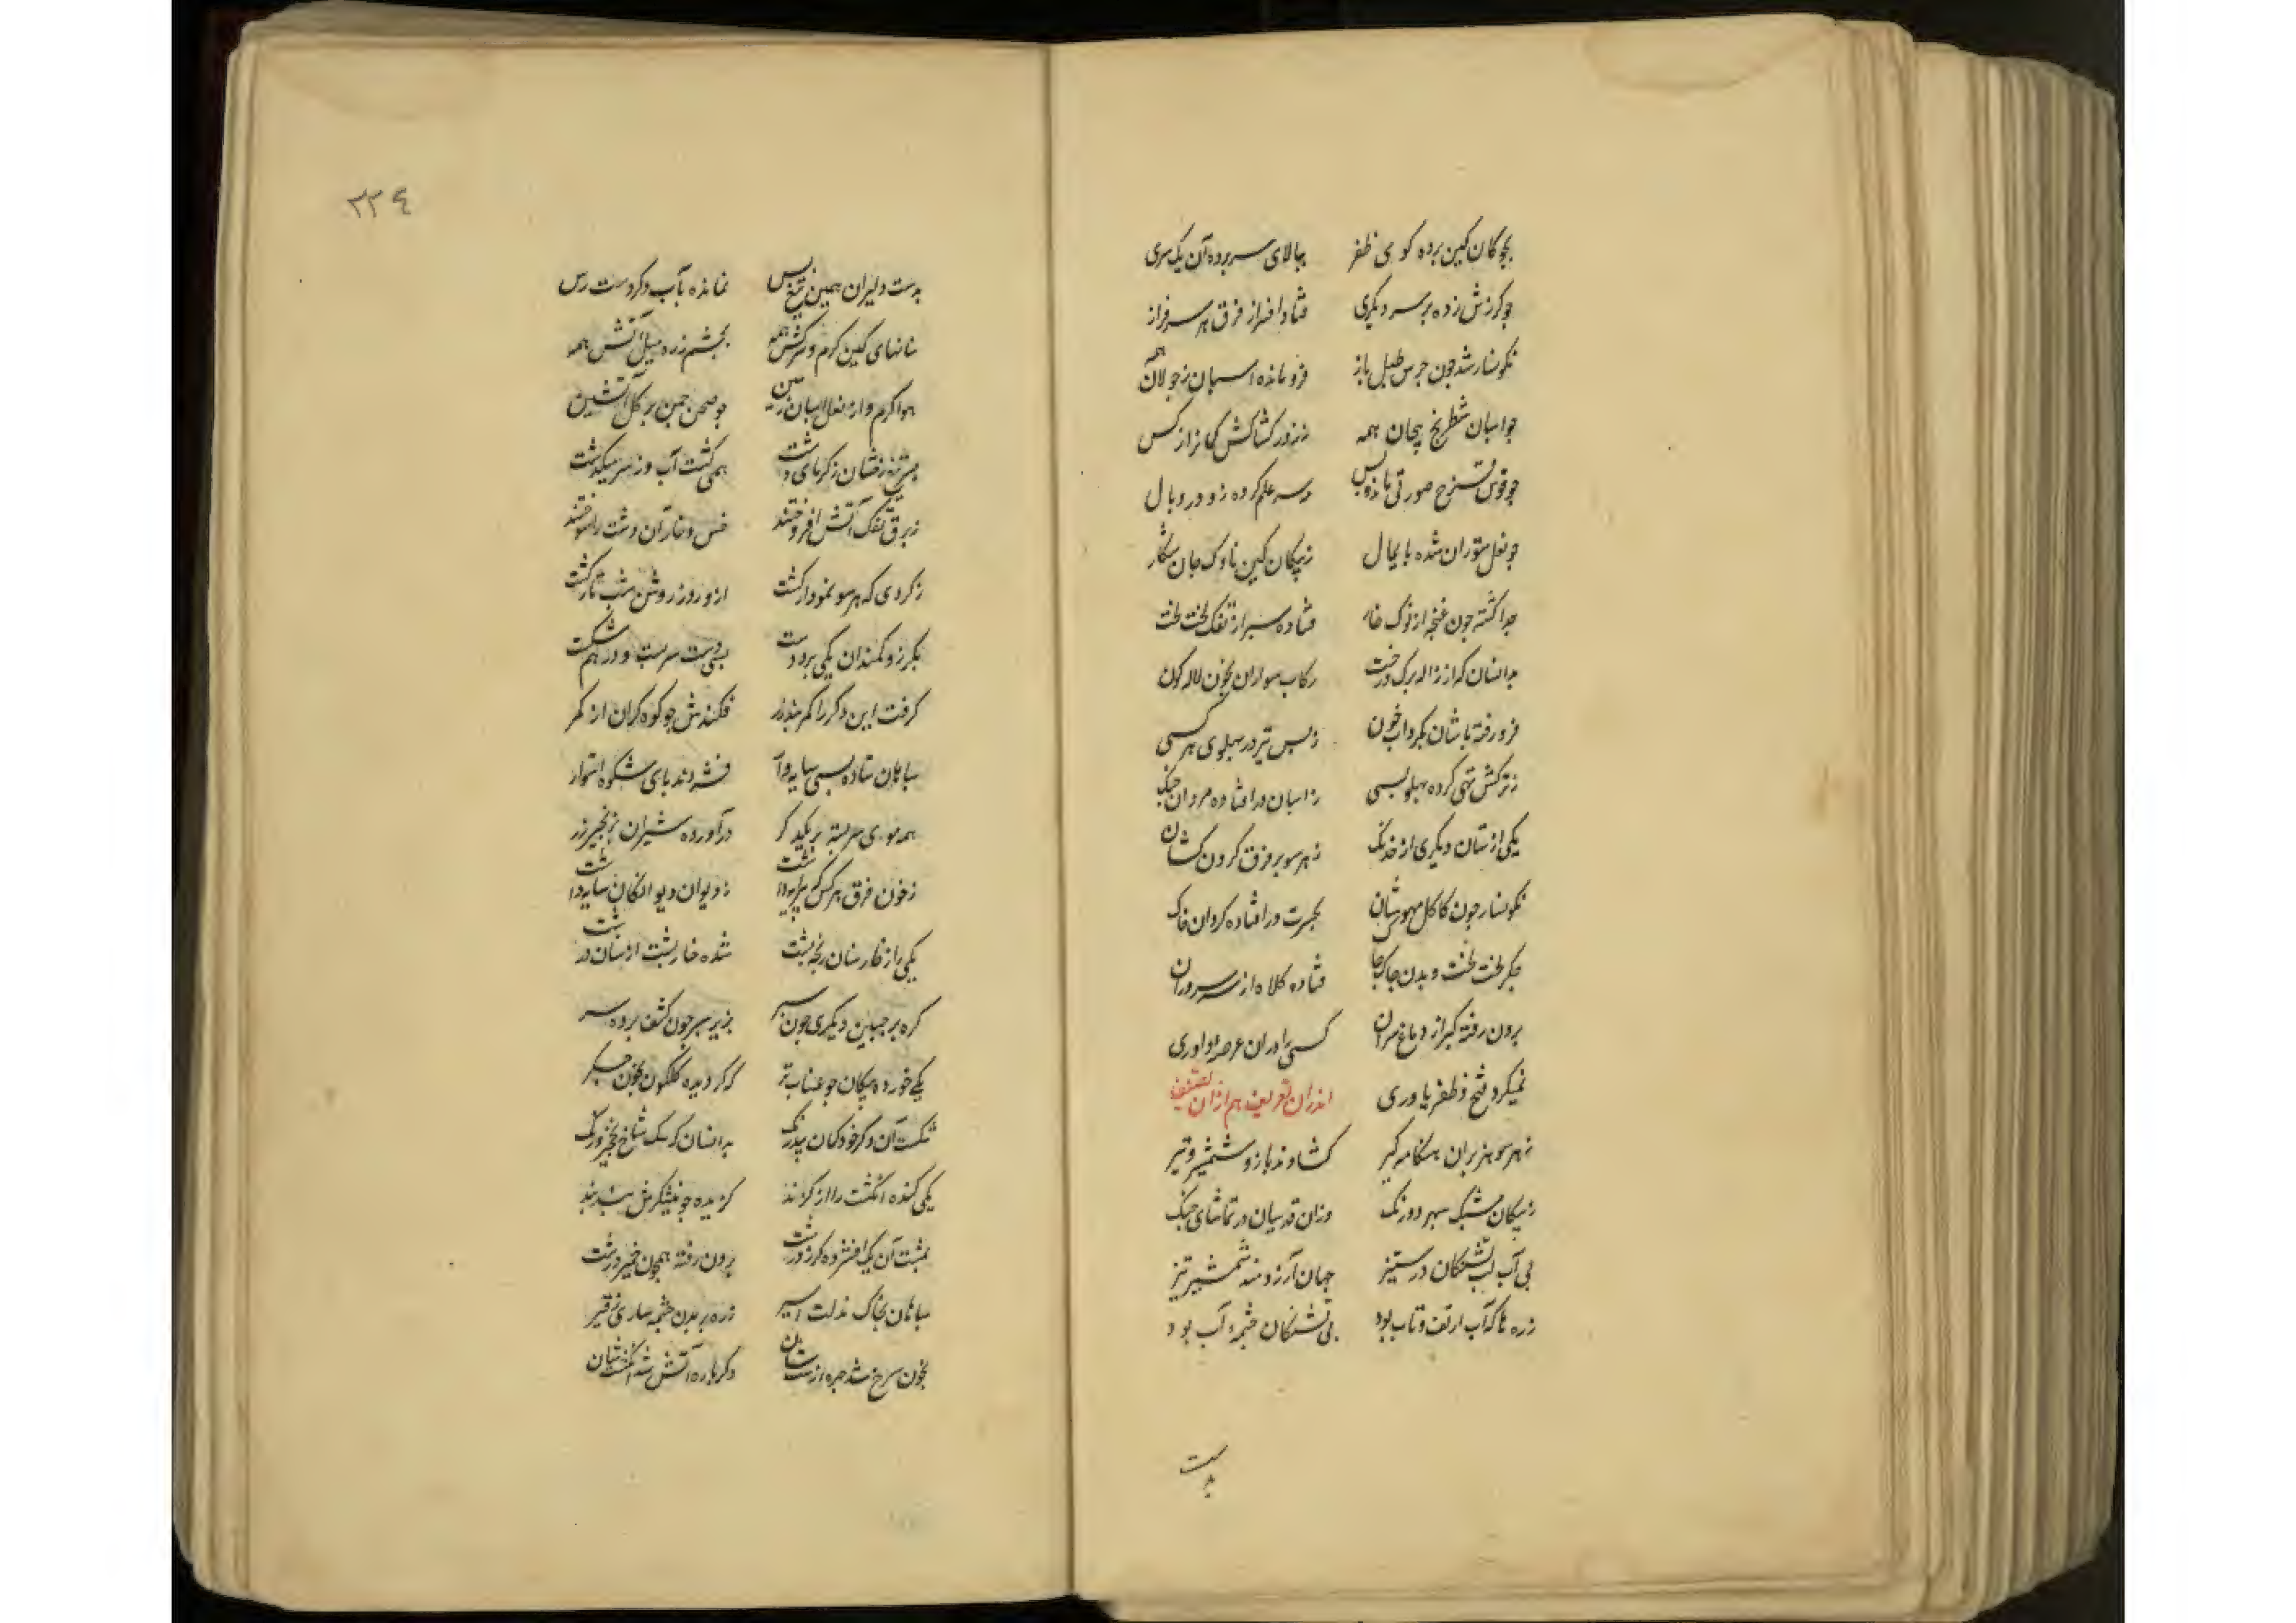 بچوکان کین برده کوی ظفر ببالای سر برده آن یک سری
چو کرزش زده بر سر دیکری فتاد افسر از فرق هر سرفراز
نکونسار شد چون جرس طبل باز فرو مانده اسبان ز جولان همه
چو اسبان شطرنج پیجان همه ز زور کشاکش کمانراز کس
چو قوس قزح صورتی مانده و بس سر علم کرده زو در وبال
چو نعل ستوران شده پایمال ز پیکان کین ناوک جان شکار
جدا کشته چون غنچه از نوک خار فتاده سپر از تفک لخت لخت
بدانسان که از ژاله برک درخت رکاب سواران بخون لاله کون
فرو رفته پاشان بکرداب خون ز بس تیر در پهلوی هر کسی
ز ترکش تهی کرده پهلو بسی ز اسبان در افتاده مردان جنک
یکی از سنان دیکری از خدنک ز هر سو بر فرق کردن کشان
نکونسار چون کاکل مهوشان بحسرت در افتاده کردان خاک
جکر لخت لخت و بدن جاک جاک فتاده کلاه از سر سروران
برون رفته کبر از دماغ سران کسی را دران عرصه داوری
نمیکرد فتح و ظفر یاوری اندران تعریف هم از ان تصنیف
ز هر سو هزبران هنکامه کیر کشادند بازو شمشیر و تیر
ز پیکان مشبک سپهر دو رنک وزان قدسیان در تماشای جنک
بی آب لب تشنکان در ستیز جهان آرزومند شمشیر تیز
زره ها که آب از تف و تاب بود بی تشنکان جشمه آب بود
بدست
۲۲۴
بدست دلیران همین تیغ بس نمانده بآب دکر دست رس
سنانهای کین کرم و سرکش همه بجشم زره میل آتش همه
هوا کرم و از نعل اسبان زمین چو صحن جمن بر کل آتشین
زره شان ز کرمای دشت همی کشت آب و ز سر میکذشت
ز برق تفک آتش افروختند خس و خار آن دشت را سوختند
ز کردی که هر سو نمودار کشت ازو روز روشن شب تار کشت
بکرز و کمندان یکی برد دست بسی دست سر بست و در هم شکست
کرفت این دکر را کمربند زر فکندش چو کوه کران از کمر
سپاهان ستاده بسی سایه وار فشردند پای شکوه استوار
همه موی سر بسته بر یکدکر درآورده شیران بزنجیر زر
ز خون فرق هر کس پیرایه داشت ز دیوان دیوانکان سایه داشت
یکی را ز کار سنان رنجه پشت شده خار پشت از سنان درشت
کره بر جبین دیکری جون سپر بزیر سپر جون کشف برده سر
یکی خورده پیکان جو عناب تر که کردیده کلکون بخون جکر
شکست آن دکر خود کمان بیدرنک بدانسان که یک شاخ نخجیر و رنک
یکی کنده انکشت را از کزند کزیده جو نیشکرش بند بند
بمشت آن یک افشرده کرز درشت برون رفته همچون خمیر درشت
سپاهان بخاک مذلت اسیر زره بر بدن جشمه ساری ز قیر
بخون سرخ شد جهره از ستان دکرباره آتش شد انکشتشان